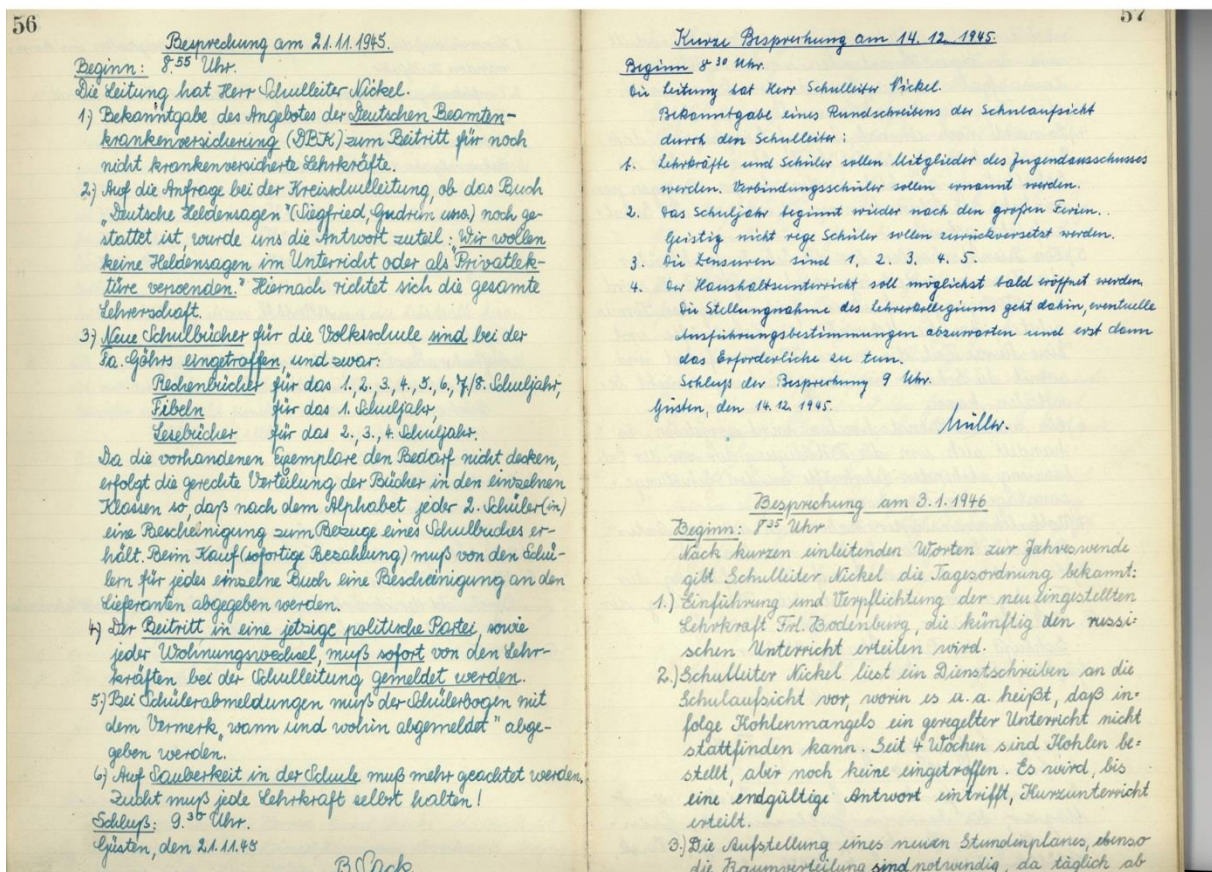 56
Besprechung am 21.11.1945.
Beginn: 8.55 Uhr.
Die Leitung hat Herr Schulleiter Nickel.
1.) Bekanntgabe des Angebotes der Deutschen Beamten-
krankenversicherung (DBK) zum Beitritt für noch
nicht krankenversicherte Lehrkräfte.
2.) Auf die Anfrage bei der Kreisschulleitung, ob das Buch
„Deutsche Heldensagen" (Siegfried, Gudrun usw.) noch ge-
stattet ist, wurde uns die Antwort zuteil: „Wir wollen
keine Heldensagen im Unterricht oder als Privatlek-
türe verwenden." Hiernach richtet sich die gesamte
Lehrerschaft.
3.) Neue Schulbücher für die Volksschule sind bei der
Fa. Göhrs eingetroffen, und zwar:
Rechenbücher für das 1., 2., 3., 4., 5., 6., 7./8. Schuljahr,
Fibeln für das 1. Schuljahr,
Lesebücher für das 2., 3., 4. Schuljahr.
Da die vorhandenen Exemplare den Bedarf nicht decken,
erfolgt die gerechte Verteilung der Bücher in den einzelnen
Klassen so, daß nach dem Alphabet jeder 2. Schüler(in)
eine Bescheinigung zum Bezuge eines Schulbuches er-
hält. Beim Kauf (sofortige Bezahlung) muß von den Schü-
lern für jedes einzelne Buch eine Bescheinigung an den
Lieferanten abgegeben werden.
4.) Der Beitritt in eine jetzige politische Partei, sowie
jeder Wohnungswechsel, muß sofort von den Lehr-
kräften bei der Schulleitung gemeldet werden.
5.) Bei Schülerabmeldungen muß der Schülerbogen mit
dem Vermerk „wann und wohin abgemeldet" abge-
geben werden.
6.) Auf Sauberkeit in der Schule muß mehr geachtet werden.
Zucht muß jede Lehrkraft selbst halten!
Schluß: 9.30 Uhr.
Güsten, den 21.11.45
57
Kurze Besprechung am 14.12.1945.
Beginn 8 30 Uhr.
Die Leitung hat Herr Schulleiter Nickel.
Bekanntgabe eines Rundschreibens der Schulaufsicht
durch den Schulleiter:
1. Lehrkräfte und Schüler sollen Mitglieder des Jugendausschusses
werden. Verbindungsschüler sollen ernannt werden.
2. Das Schuljahr beginnt wieder nach den großen Ferien..
Geistig nicht rege Schüler sollen zurückversetzt werden.
3. Die Zensuren sind 1, 2. 3. 4. 5.
4. Der Haushaltsunterricht soll möglichst bald eröffnet werden.
Die Stellungnahme des Lehrerkollegiums geht dahin, eventuelle
Ausführungsbestimmungen abzuwarten und erst dann
das Erforderliche zu tun.
Schluß der Besprechung 9 Uhr.
Güsten, den 14.12.1945.
Müller.
Besprechung am 3.1.1946
Beginn: 8 35 Uhr
Nach kurzen einleitenden Worten zur Jahreswende
gibt Schulleiter Nickel die Tagesordnung bekannt:
1.) Einführung und Verpflichtung der neu eingestellten
Lehrkraft Frl. Bodenburg, die künftig den russi=
schen Unterricht erteilen wird.
2.) Schulleiter Nickel liest ein Dienstschreiben an die
Schulaufsicht vor, worin es u. a. heißt, daß in=
folge Kohlenmangels ein geregelter Unterricht nicht
stattfinden kann. Seit 4 Wochen sind Kohlen be=
stellt, aber noch keine eingetroffen. Es wird, bis
eine endgültige Antwort eintrifft, Kurzunterricht
erteilt.
3.) Die Aufstellung eines neuen Stundenplanes, ebenso
die Raumverteilung sind notwendig, da täglich ab